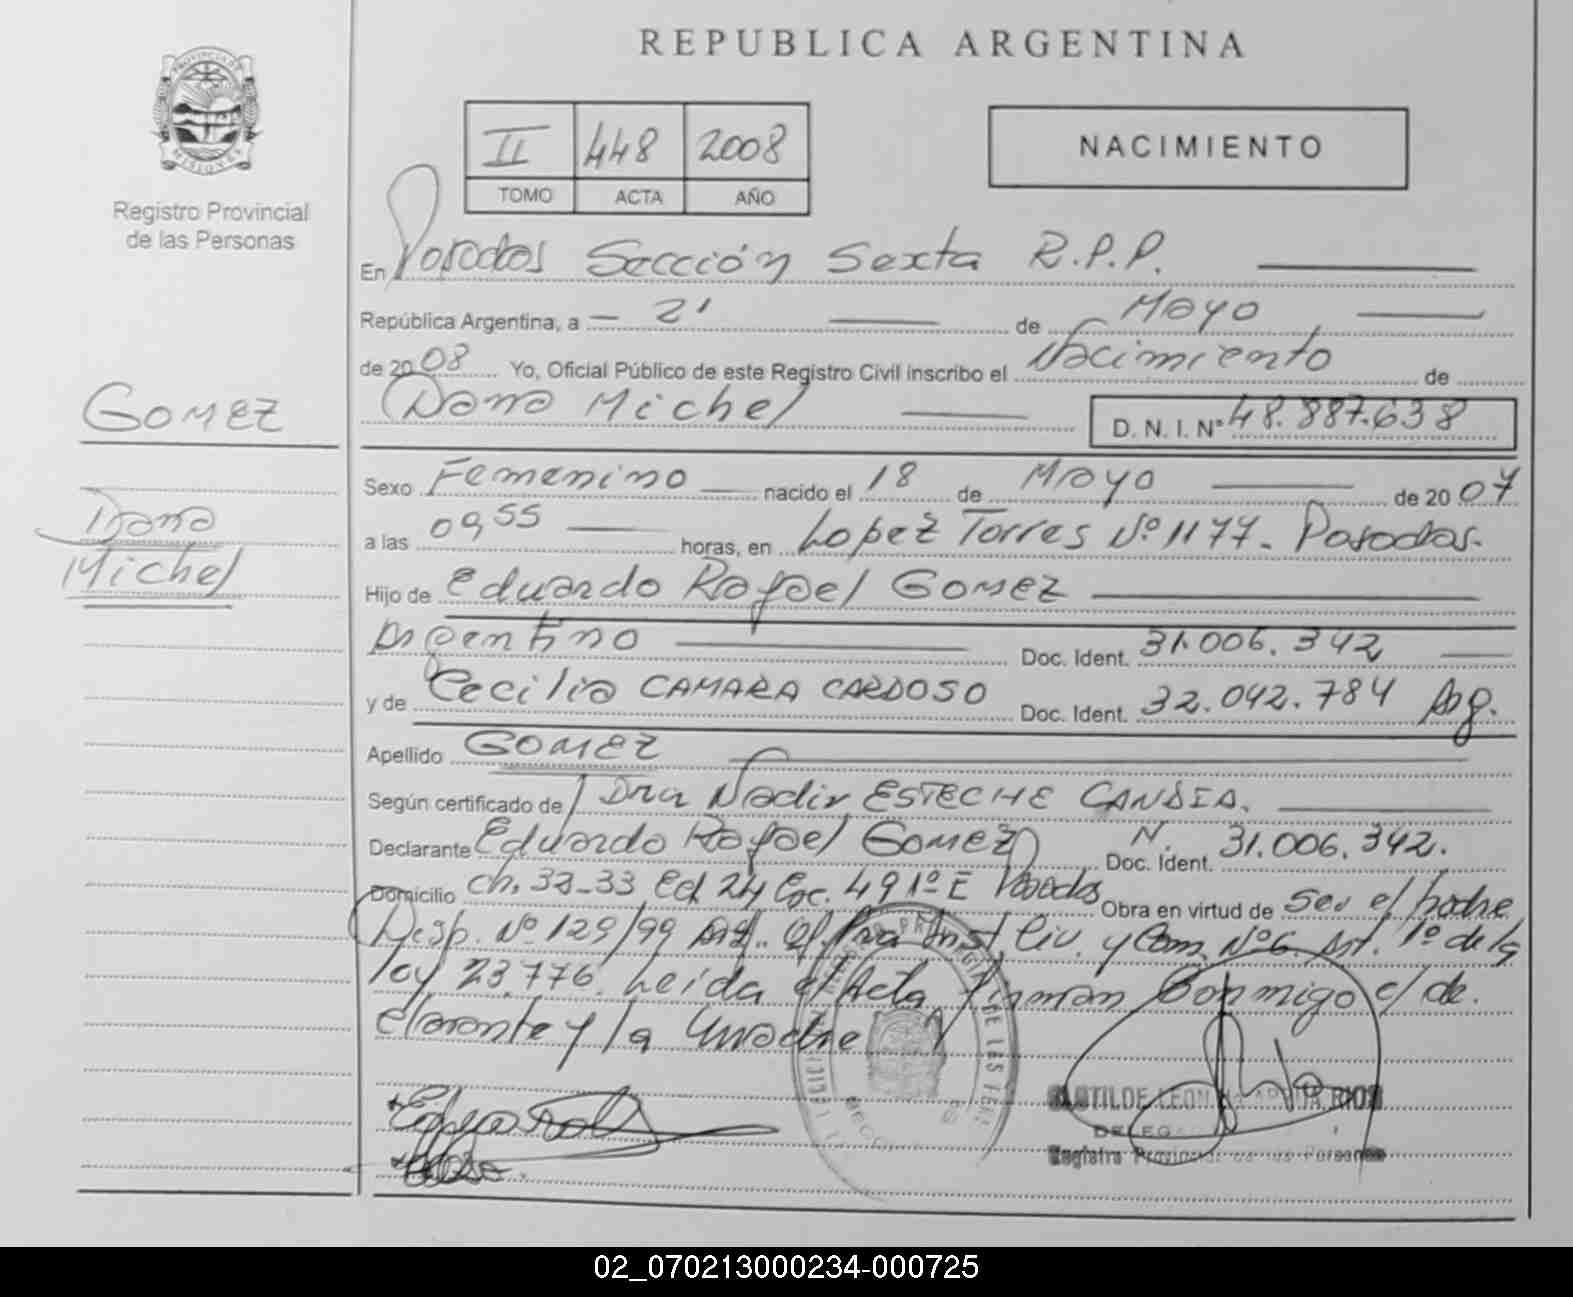 REPUBLICA ARGENTINA
PROVINCIA DE
MISIONES
Registro Provincial
de las Personas
II 448 2008
TOMO ACTA AÑO
NACIMIENTO
En Posadas Sección Sexta R.P.P.
República Argentina, a 21 de Mayo
de 2008 Yo, Oficial Público de este Registro Civil inscribo el Nacimiento de
Dana Michel D. N. I. Nº 48.887.638
GOMEZ
Dana
Michel
Sexo Femenino nacido el 18 de Mayo de 2007
a las 09,55 horas, en Lopez Torres Nº 1177- Posadas.
Hijo de Eduardo Rafael GOMEZ
Argentino Doc. Ident. 31.006.342
y de Cecilia CAMARA CARDOSO Doc. Ident. 32.042.784 Arg.
Apellido GOMEZ
Según certificado de Dra Nadir ESTECHE CANDIA.
Declarante Eduardo Rafael GOMEZ Doc. Ident. N. 31.006.342.
Domicilio ch. 32-33 Ed 24 Esc. 49 1º E Posadas Obra en virtud de ser el padre
Disp. Nº 129/99 Inst. Civ. y Com. Nº 6. Art. 1º de la
ley 23.776. Leida el Acta firman Conmigo el de-
clarante y la madre
DELEGADA
Registro Provincial de las Personas
02_070213000234-000725